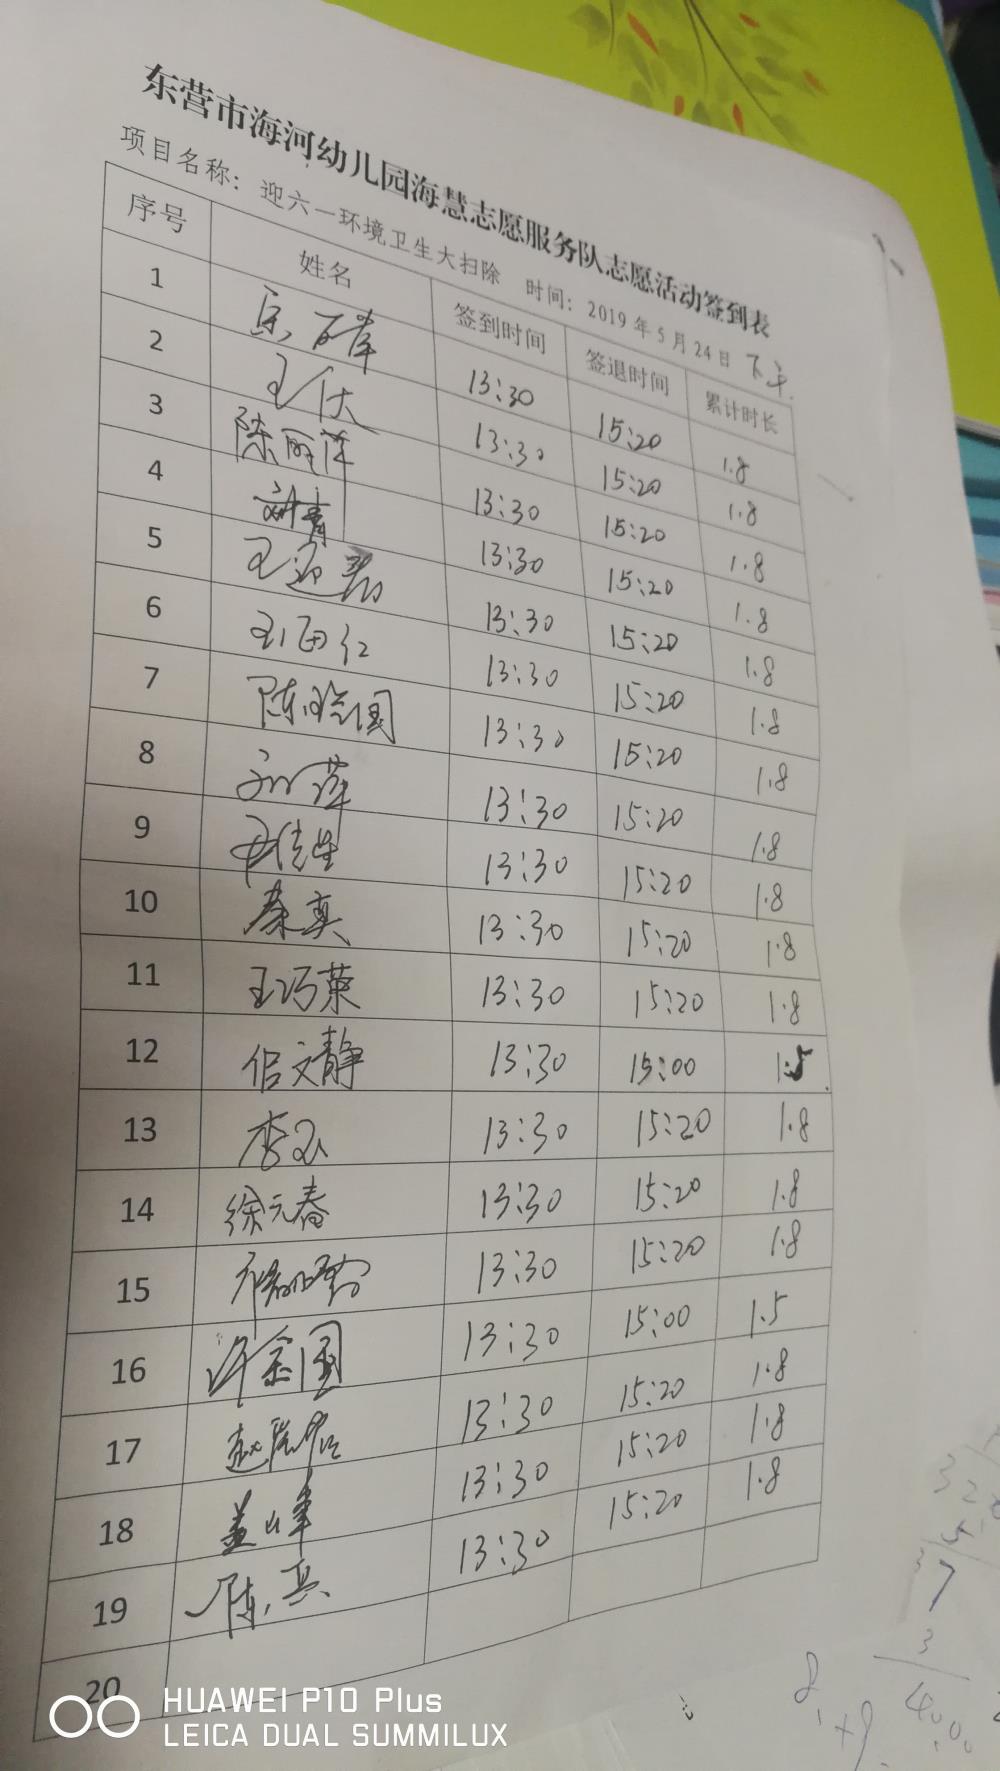 东营市海河幼儿园海慧志愿服务队志愿活动签到表
项目名称：迎六一环境卫生大扫除 时间：2019年5月24日 下午.
序号 姓名 签到时间 签退时间 累计时长
1 13:30 15:20 1.8
2 13:30 15:20 1.8
3 陈丽萍 13:30 15:20 1.8
4 刘青 13:30 15:20 1.8
5 13:30 15:20 1.8
6 13:30 15:20 1.8
7 陈晓国 13:30 15:20 1.8
8 刘萍 13:30 15:20 1.8
9 13:30 15:20 1.8
10 秦真 13:30 15:20 1.8
11 王巧荣 13:30 15:20 1.8
12 侣文静 13:30 15:00 1.5
13 李玉 13:30 15:20 1.8
14 徐元春 13:30 15:20 1.8
15 13:30 15:20 1.8
16 许金国 13:30 15:00 1.5
17 13:30 15:20 1.8
18 盖峰 13:30 15:20 1.8
19 陈兵 13:30 15:20 1.8
20
37
3
HUAWEI P10 Plus
LEICA DUAL SUMMILUX